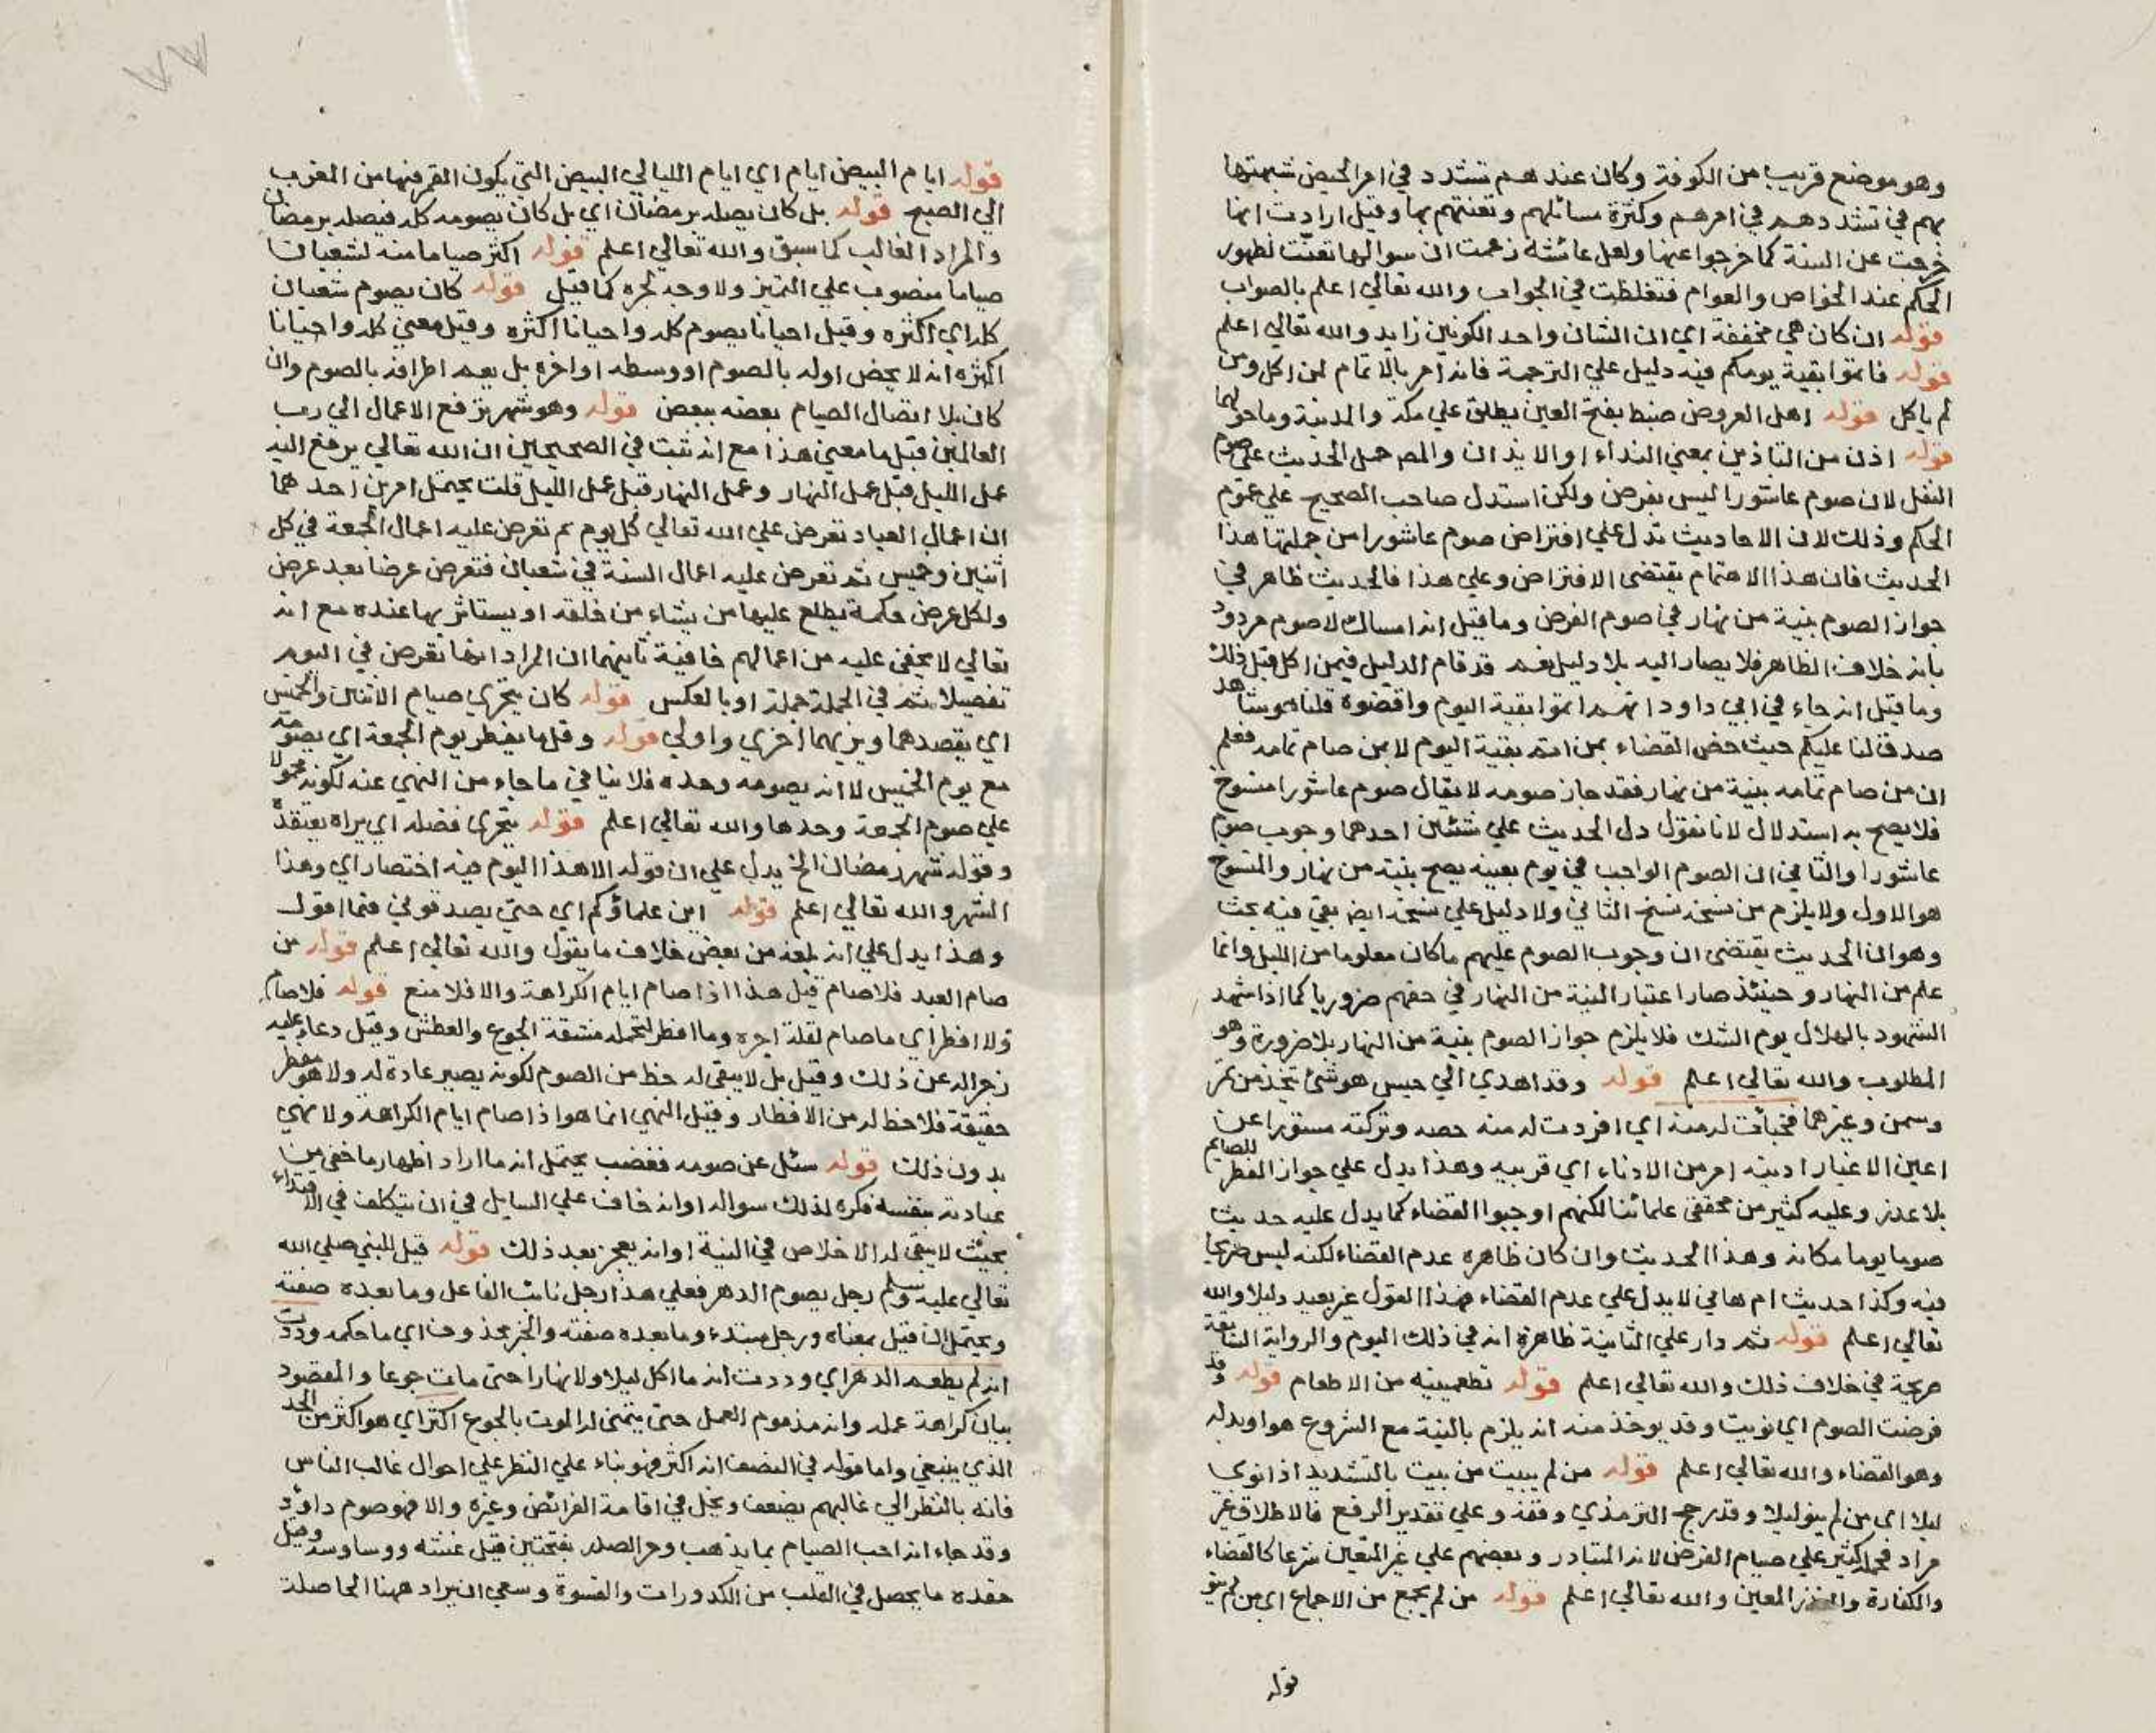 وهو موضع قريب من الكوفة وكان عندهم تشدد في امر الحيض شبهتها
بهم في تشددهم في امرهم وكثرة مسائلهم وتعنتهم بها وقيل ارادت انها
خرجت عن السنة كما خرجوا عنها ولعل عائشة زعمت ان سوالها تعنت لظهور
الحكم عند الخواص والعوام فتغلظت في الجواب والله تعالي اعلم بالصواب
قوله ان كان هي مخففة اي ان الشان واحد الكونين زايد والله تعالي اعلم
قوله فاتموا بقية يومكم فيه دليل علي الترجمة فانه امر بالاتمام لمن اكل ومن
لم ياكل قوله اهل العروض ضبط بفتح العين يطلق علي مكة والمدينة وما حولهما
قوله اذن من التاذين بمعني النداء او الايذان والمص حمل الحديث علي صوم
النفل لان صوم عاشورا ليس بفرض ولكن استدل صاحب الصحيح علي عموم
الحكم وذلك لان الاحاديث تدل علي افتراض صوم عاشورا من جملتها هذا
الحديث فان هذا الاهتمام يقتضى الافتراض وعلي هذا فالحديث ظاهر في
جواز الصوم بنية من نهار في صوم الفرض وما قيل انه امساك لا صوم مردود
بانه خلاف الظاهر فلا يصار اليه بلا دليل نعم قد قام الدليل فيمن اكل قبل ذلك
وما قيل انه جاء في ابي داود انهم اتموا بقية اليوم واقضوه قلنا هو شاهد
صدق لنا عليكم حيث خص القضاء بمن اتم بقية اليوم لا بمن صام تمامه فعلم
ان من صام تمامه بنية من نهار فقد جاز صومه لا يقال صوم عاشورا منسوخ
فلا يصح به استدلال لانا نقول دل الحديث علي شيئين احدهما وجوب صوم
عاشورا والثاني ان الصوم الواجب في يوم بعينه يصح بنية من نهار والمنسوخ
هو الاول ولا يلزم من نسخه نسخ الثاني ولا دليل علي نسخه ايضا بقي فيه بحث
وهو ان الحديث يقتضى ان وجوب الصوم عليهم ما كان معلوما من الليل وانما
علم من النهار وحينئذ صار اعتبار النية من النهار في حقهم ضروريا كما اذا شهد
الشهود بالهلال يوم الشك فلا يلزم جواز الصوم بنية من النهار بلا ضرورة وهو
المطلوب والله تعالي اعلم قوله وقد اهدي الي حيس هو شئ يتخذ من تمر
وسمن وغيرهما فخبأت له منه اي افردت له منه حصه وتركته مستورا عن
اعين الاغيار ادنيه امر من الادناء اي قربيه وهذا يدل علي جواز الفطر للصائم
بلا عذر وعليه كثير من محققى علمائنا لكنهم اوجبوا القضاء كما يدل عليه حديث
صوما يوما مكانه وهذا الحديث وان كان ظاهره عدم القضاء لكنه ليس صريحا
فيه وكذا حديث ام هاني لا يدل علي عدم القضاء فهذا القول غير بعيد دليلا والله
تعالي اعلم قوله ثم دار علي الثانية ظاهرة انه في ذلك اليوم والرواية التابعة
صريحة في خلاف ذلك والله تعالي اعلم قوله تطعمينيه من الاطعام قوله وقد
فرضت الصوم اي نويت وقد يوخذ منه انه يلزم بالنية مع الشروع هو او بدله
وهو القضاء والله تعالي اعلم قوله من لم يبيت من بيت بالتشديد اذا نوى
ليلا اى من لم ينو ليلا وقد رجح الترمذي وقفه وعلي تقدير الرفع فالاطلاق غير
مراد فحمله كثير علي صيام الفرض لانه المتبادر وبعضهم علي غير المتعين شرعا كالقضاء
والكفارة والنذر المعين والله تعالي اعلم قوله من لم يجمع من الاجماع اي من لم ينو
قوله
قوله ايام البيض ايام اي ايام الليالي البيض التي يكون القمر فيها من المغرب
الي الصبح قوله بل كان يصله برمضان اي بل كان يصومه كله فيصله برمضان
والمراد الغالب كما سبق والله تعالي اعلم قوله اكثر صياما منه لشعبان
صياما منصوب علي التميز ولا وجه لجره كما قيل قوله كان يصوم شعبان
كله اي اكثره وقيل احيانا يصوم كله واحيانا اكثره وقيل معني كله واحيانا
اكثره انه لا يخص اوله بالصوم او وسطه او اخره بل يعم اطرافه بالصوم وان
كان بلا اتصال الصيام بعضه ببعض قوله وهو شهر ترفع الاعمال الي رب
العالمين قيل ما معني هذا مع انه ثبت في الصحيحين ان الله تعالي يرفع اليه
عمل الليل قبل عمل النهار وعمل النهار قبل عمل الليل قلت يحتمل امرين احدهما
ان اعمال العباد تعرض علي الله تعالي كل يوم ثم تعرض عليه اعمال الجمعة في كل
اثنين وخميس ثم تعرض عليه اعمال السنة في شعبان فتعرض عرضا بعد عرض
ولكل عرض حكمة يطلع عليها من يشاء من خلقه او يستاثر بها عنده مع انه
تعالي لا يخفى عليه من اعمالهم خافية ثانيهما ان المراد انها تعرض في اليوم
تفصيلا ثم في الجملة جملة او بالعكس قوله كان يتحري صيام الاثنين والخميس
اي يقصدهما ويريهما احري واولي قوله وقل ما يفطر يوم الجمعة اي يصومه
مع يوم الخميس لا انه يصومه وحده فلا ينافي ما جاء من النهي عنه لكونه محمولا
علي صوم الجمعة وحدها والله تعالي اعلم قوله يتحرى فضله اي يراه يعتقده
وقوله شهر رمضان الخ يدل علي ان قوله الا هذا اليوم فيه اختصار اي وهذا
الشهر والله تعالي اعلم قوله اين علماؤكم اي حتي يصدقوني فيما اقول
وهذا يدل علي انه بلغه من بعض خلاف ما يقول والله تعالي اعلم قوله من
صام العبد فلا صام قيل هذا اذا صام ايام الكراهة والا فلا منع قوله فلا صام
ولا افطر اي ما صام لقلة اجره وما افطر لتحمله مشقة الجوع والعطش وقيل دعاء عليه
زجرا له عن ذلك وقيل بل لا يبقى له حظ من الصوم لكونه يصير عادة له ولا هو مفطر
حقيقة فلا حظ له من الافطار وقيل النهي انما هو اذا صام ايام الكراهة ولا نهي
بدون ذلك قوله سئل عن صومه فغضب يحتمل انه ما اراد اظهار ما خفي من
عبادته بنفسه فكره لذلك سواله او انه خاف علي السايل في ان يتكلف في الاقتداء
بحيث لا يبقى له الاخلاص في النية او انه يعجز بعد ذلك قوله قيل للنبي صلي الله
تعالي عليه وسلم رجل يصوم الدهر فعلي هذا رجل نائب الفاعل وما بعده صفته
ويحتمل ان قيل بمعناه ورجل مبتدء وما بعده صفته والخبر محذوف اي ما حكمه وددت
انه لم يطعم الدهر اي وددت انه ما اكل ليلا ولا نهارا حتى مات جوعا والمقصود
بيان كراهة عمله وانه مذموم العمل حتى يتمني له الموت بالجوع اكثر اي هو اكثر من الحد
الذي ينبغي واما قوله في النصف انه اكثر فهو بناء علي النظر علي احوال غالب الناس
فانه بالنظر الي غالبهم يضعف ويخل في اقامة الفرائض وغيره والا فهو صوم داود
وقد جاء انه احب الصيام بما يذهب وحر الصدر بفتحتين قيل غشه ووساوسه وقيل
حقده ما يحصل في القلب من الكدورات والقسوة وسعي ان يراد ههنا الحاصلة